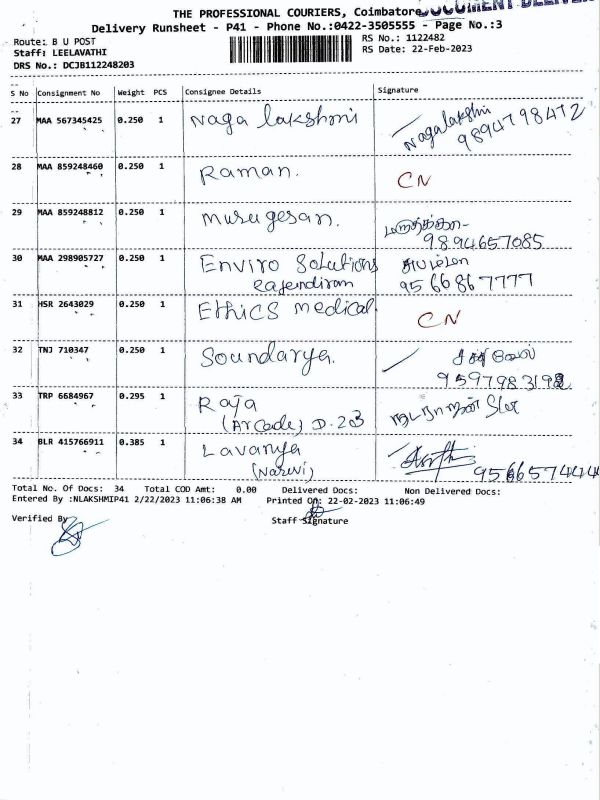 THE PROFESSIONAL COURIERS, Coimbatore
DOCUMENT DELIVER
Delivery Runsheet - P41 - Phone No.:0422-3505555 - Page No.:3
Route: B U POST
RS No.: 1122482
Staff: LEELAVATHI
RS Date: 22-Feb-2023
DRS No.: DCJB112248203
S No Consignment No Weight PCS Consignee Details Signature
27 MAA 567345425 0.250 1 Naga lakshmi Nagalakshmi
9894798472
28 MAA 859248460 0.250 1 Raman. CN
29 MAA 859248812 0.250 1 Murugesan.
9894657085
30 MAA 298905727 0.250 1 Enviro Solutions
Rajendiran 9566867777
31 HSR 2643029 0.250 1 Ethics medical. CN
32 TNJ 710347 0.250 1 Soundarya. சக்திவேல்
9597983198
33 TRP 6684967 0.295 1 Raja நடராஜன்
(Arcade) D.203
34 BLR 415766911 0.385 1 Lavanya
(Narevi) 956657444
Total No. Of Docs: 34 Total COD Amt: 0.00 Delivered Docs: Non Delivered Docs:
Entered By :NLAKSHMIP41 2/22/2023 11:06:38 AM Printed On: 22-02-2023 11:06:49
Verified By
Staff Signature